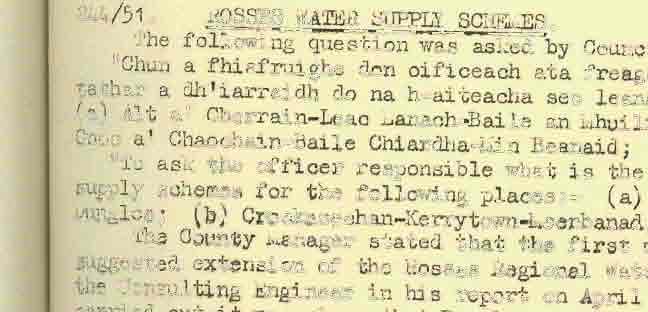 244/51. ROSSES WATER SUPPLY SCHEMES
The following question was asked by Counc
"Chun a fhiafruighe don oificeach ata freag
a dh'iarraidh do na h-aiteacha seo lean
(a) Alt a' Chorrain-Leac Baile an Mhuil
Cnoc a' Chaochain-Baile Chiardha-Min Beanaid;
"To ask the officer responsible what is the
supply schemes for the following places:- (a)
Dungloe; (b) Croakaseehan-Kerrytown-
The County Manager stated that the first
suggested extension of the Rosses Regional Wat
the Consulting Engineer in his report on April
carried out it